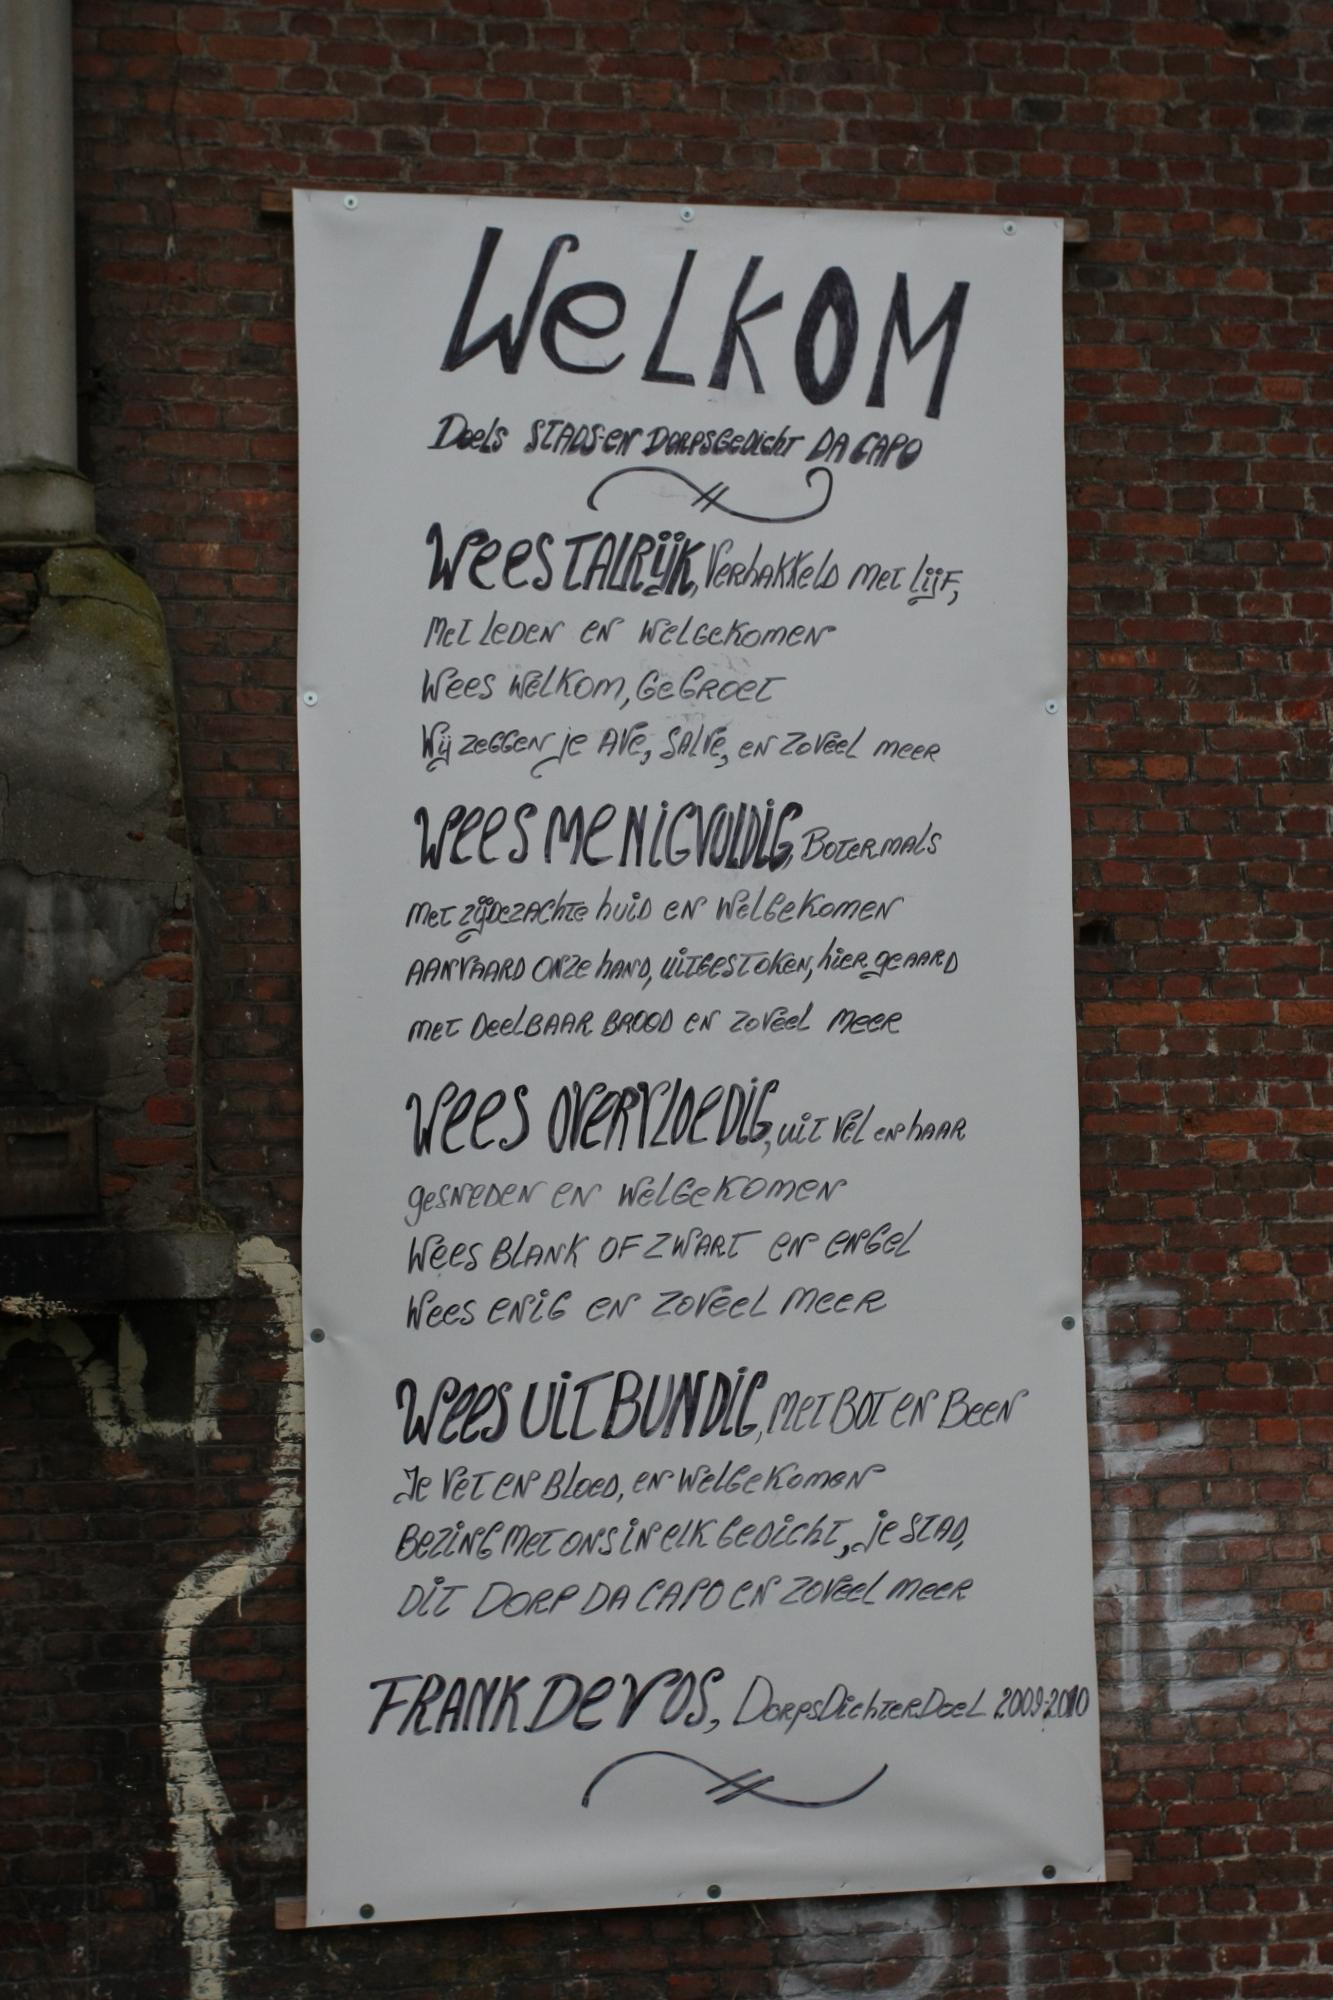 WeLKOM
Doels STADS-EN DORPSGeDicht DA CAPO
Wees TALRijK, VerhaKKelD Met Lijf,
Met LeDeN en WelGeKomeN
Wees WelKom, GeGRoet
Wij zeGGen je Ave, Salve, en Zoveel meer
Wees MeNiGVOLDiG, BotermaLs
Met zijDezAchte huiD en WelGeKomeN
AANVAARD ONze hAND, uitGestoKen, hier geaarD
met DeelBAAR BROOD en zoveel Meer
Wees OVeRVLOeDiG, uit Vel en hAAR
gesNeDeN eN WelGeKomeN
Wees BLANK OF ZWART en eNGel
Wees eNiG en Zoveel Meer
Wees UiTBUNDiG, Met BOT en Been
Je Vet en BloeD, en WelGeKomeN
BeziNG Met ons iN elK GeDicht, je STAD,
DiT DORP DA CAPO en Zoveel Meer
FRANK De VOS, DorpsDichter Doel 2009-2010